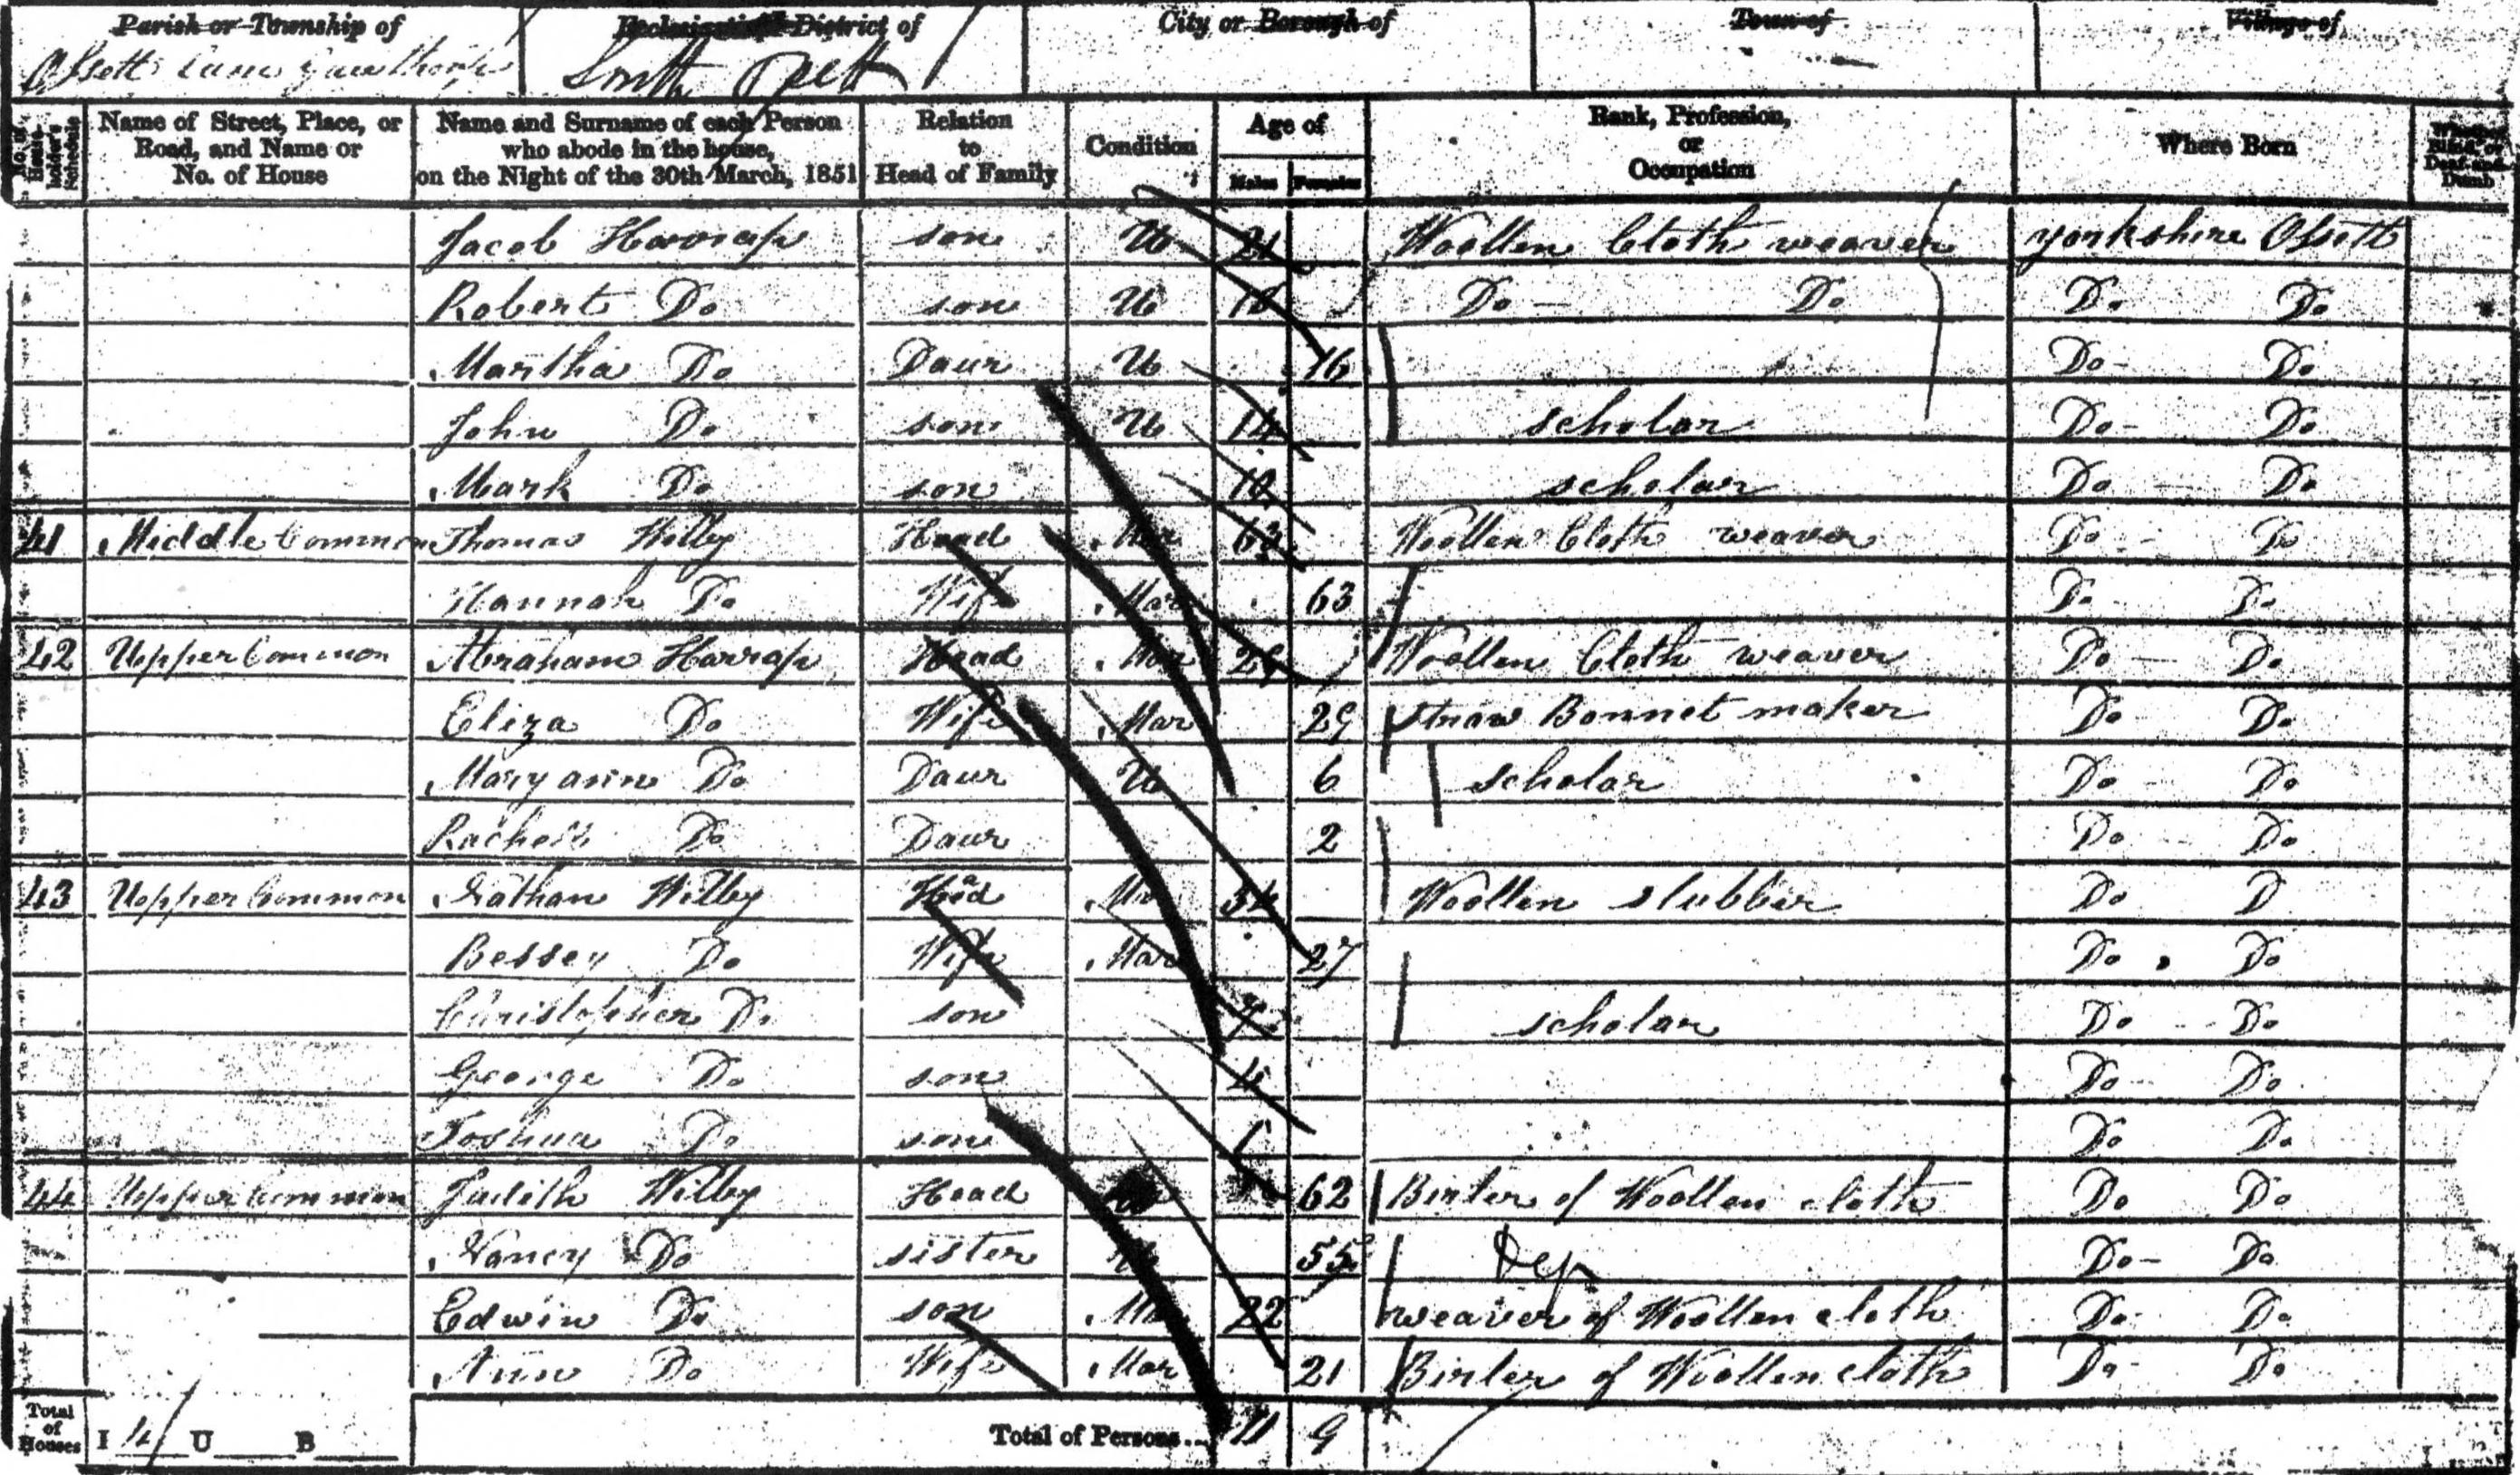 Parish or Township of
Ecclesiastical District of
City or Borough of
Town of
Village of
Ossett cum Gawthorpe
South
No. of House-holder's Schedule
Name of Street, Place, or Road, and Name or No. of House
Name and Surname of each Person who abode in the house, on the Night of the 30th March, 1851
Relation to Head of Family
Condition
Age of
Males Females
Rank, Profession, or Occupation
Where Born
Whether Blind, or Deaf-and-Dumb
Jacob Harrap son U 21 Woollen Cloth weaver Yorkshire Ossett
Robert Do son U Do Do Do Do
Martha Do Daur U 16 Do Do
John Do son U 14 scholar Do Do
Mark Do son scholar Do Do
41 Middle Common Thomas Wilby Head Mar Woollen Cloth weaver Do Do
Hannah Do Wife Mar 63 Do Do
42 Upper Common Abraham Harrap Head Mar Woollen Cloth weaver Do Do
Eliza Do Wife Mar 29 straw Bonnet maker Do Do
Mary ann Do Daur U 6 scholar Do Do
Rachel Do Daur 2 Do Do
43 Upper Common Nathan Wilby Head Mar 34 Woollen slubber Do D
Bessey Do Wife Mar 27 Do Do
Christopher Do son scholar Do Do
George Do son 4 Do Do
Joshua Do son Do Do
44 Upper Common Judith Wilby Head 62 Birler of Woollen cloth Do Do
Nancy Do sister 55 Dep Do Do
Edwin Do son Mar 22 weaver of Woollen cloth Do Do
Ann Do Wife Mar 21 Birler of Woollen cloth Do Do
Total of Houses I 4 U B
Total of Persons... 11 9